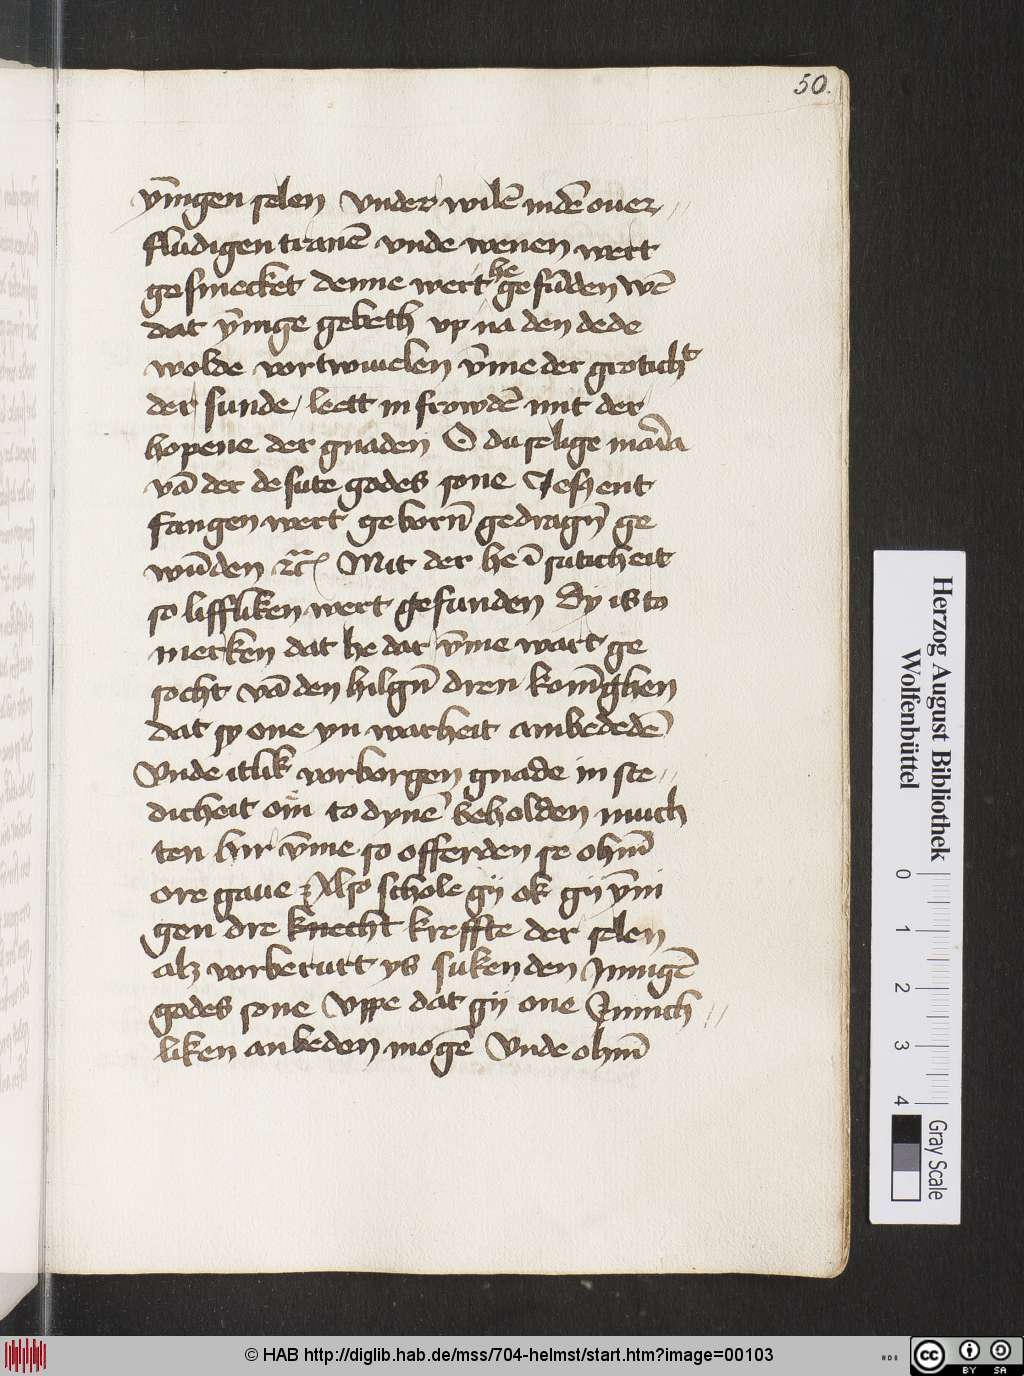 50.
ȳnigen selen vnder wilē in dē ouer
fludigen tranē vnde wenen wert
gesmecket denne wert he gefūden wē
dat ȳnige gebeth vp na den dede
wolde vortwiuelen v̄me der groticht
der sunde / lett in frowdē mit der
hopene der gnaden O du selige maria
vā der de sute godes sone Jesus ent
fangen wert geborn̄ gedragn̄ ge
wūden Mit der he ī suticheit
so liffliken wert gefunden By is to
merken dat he dar v̄me wart ge
socht vā den hilgn̄ dren konīghen
dat sy one yn warheit anbededē
Vnde itlik vorborgen gnade in ste
dicheit om̄ to dynē beholden much
ten hir v̄me so offerden se ohm̄
ore gaue Also schole gij ok gij ȳni
gen dre knecht kreffte der selen
alz vorberurt ys suken den Jnnigē
godes sone Vppe dat gij one Jnnich
liken anbeden mogē Vnde ohm̄
Herzog August Bibliothek
Wolfenbüttel
0 1 2 3 4
Gray Scale
© HAB http://diglib.hab.de/mss/704-helmst/start.htm?image=00103
cc BY SA